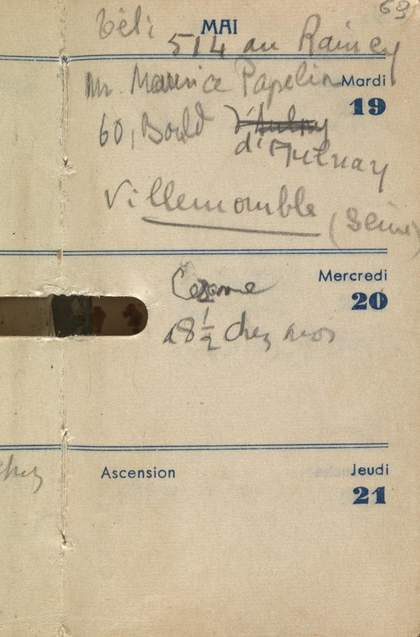 69
MAI
Tél:
514 au Raincy
Mr. Maurice Papelin
Mardi
19
60, Bould d'Aulnay
d'Aulnay
Villemomble (Seine)
Mercredi
20
à 8 1/2 chez
chez
Ascension
Jeudi
21